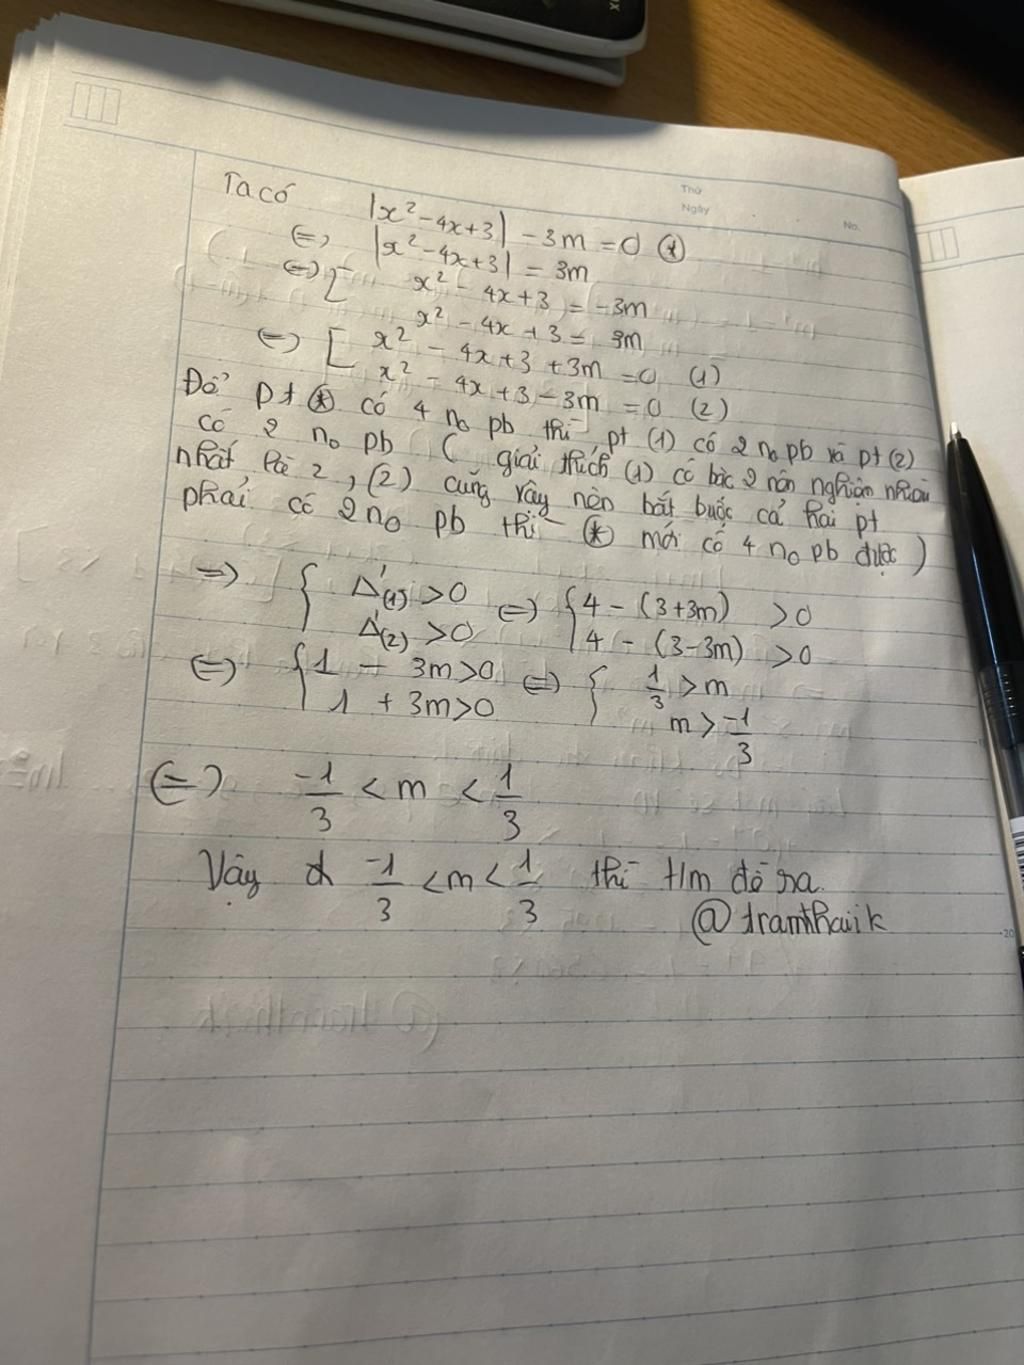 Thứ
Ngày
No.
Ta có |x² - 4x + 3| - 3m = 0 (*)
(=) |x² - 4x + 3| = 3m
(=) [ x² - 4x + 3 = -3m
x² - 4x + 3 = 3m
(=) [ x² - 4x + 3 + 3m = 0 (1)
x² - 4x + 3 - 3m = 0 (2)
Để pt (*) có 4 no pb thì pt (1) có 2 no pb và pt (2)
có 2 no pb ( giải thích (1) có bậc 2 nên nghiệm nhiều
nhất là 2, (2) cũng vậy nên bắt buộc cả hai pt
phải có 2 no pb thì (*) mới có 4 no pb được )
=) { Δ'(1) > 0 (=) { 4 - (3+3m) > 0
Δ'(2) > 0 4 - (3-3m) > 0
(=) { 1 - 3m > 0 (=) { 1/3 > m
1 + 3m > 0 m > -1/3
(=) -1/3 < m < 1/3
Vậy -1/3 < m < 1/3 thì t/m đề ra.
@tramthaiik
20